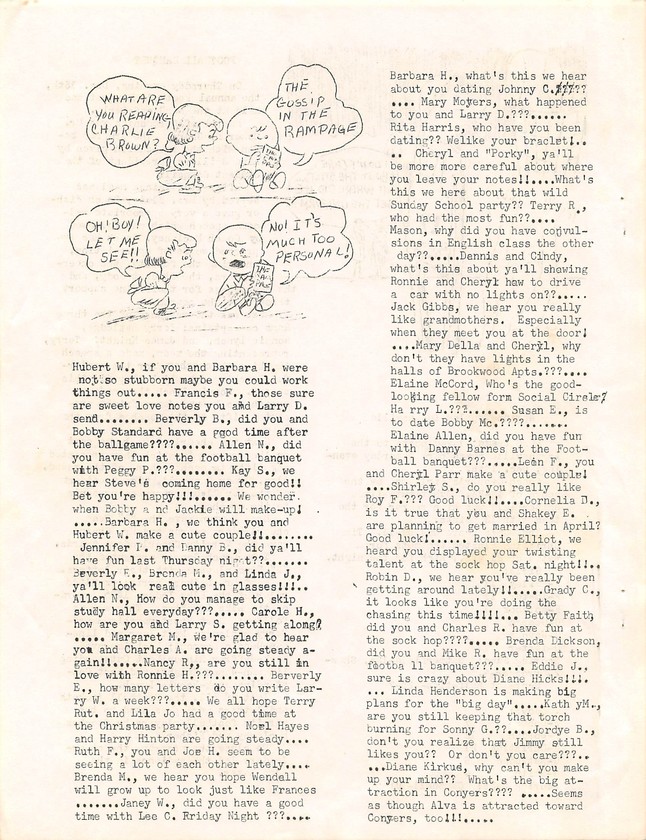 WHAT ARE
YOU READING
CHARLIE
BROWN?
THE
GOSSIP
IN THE
RAMPAGE
OH! BOY!
LET ME
SEE!!
NO! IT'S
MUCH TOO
PERSONAL!
Hubert W., if you and Barbara H. were
not so stubborn maybe you could work
things out..... Francis F., those sure
are sweet love notes you and Larry D.
send........ Berverly B., did you and
Bobby Standard have a good time after
the ballgame????...... Allen N., did
you have fun at the football banquet
with Peggy P.???........ Kay S., we
hear Steve's coming home for good!!
Bet you're happy!!!...... We wonder
when Bobby a nd Jackie will make-up!
.....Barbara H. , we think you and
Hubert W. make a cute couple!!........
Jennifer P. and Danny B., did ya'll
have fun last Thursday night??.......
Beverly E., Brenda M., and Linda J.,
ya'll look real cute in glasses!!!..
Allen N., How do you manage to skip
study hall everyday???..... Carole H.,
how are you and Larry S. getting along?
..... Margaret M., We're glad to hear
you and Charles A. are going steady a-
gain!!.....Nancy R,, are you still in
love with Ronnie H.???........ Berverly
E., how many letters do you write Lar-
ry W. a week???..... We all hope Terry
Rut. and Lila Jo had a good time at
the Christmas party....... Noel Hayes
and Harry Hinton are going steady....
Ruth F., you and Joe H. seem to be
seeing a lot of each other lately....
Brenda M., we hear you hope Wendell
will grow up to look just like Frances
.......Janey W., did you have a good
time with Leo C. Rriday Night ???.....
Barbara H., what's this we hear
about you dating Johnny C.????
.... Mary Moyers, what happened
to you and Larry D.???......
Rita Harris, who have you been
dating?? Welike your braclet!..
.. Cheryl and "Porky", ya'll
be more more careful about where
you leave your notes!!....What's
this we here about that wild
Sunday School party?? Terry R.,
who had the most fun??....
Mason, why did you have convul-
sions in English class the other
day??.....Dennis and Cindy,
what's this about ya'll showing
Ronnie and Cheryl how to drive
a car with no lights on??.....
Jack Gibbs, we hear you really
like grandmothers. Especially
when they meet you at the door!
....Mary Della and Cheryl, why
don't they have lights in the
halls of Brookwood Apts.???....
Elaine McCord, Who's the good-
looking fellow form Social Cirsle?
Ha rry L.???...... Susan E., is
to date Bobby Mc.????.......
Elaine Allen, did you have fun
with Danny Barnes at the Foot-
ball banquet???.....Leon F., you
and Cheryl Parr make a cute couple!
....Shirley S., do you really like
Roy F.??? Good luck!!....Cornelia D.,
is it true that you and Shakey E.
are planning to get married in April?
Good luck!...... Ronnie Elliot, we
heard you displayed your twisting
talent at the sock hop Sat. night!!..
Robin D., we hear you've really been
getting around lately!!.....Grady C.,
it looks like you're doing the
chasing this time!!!!... Betty Faith,
did you and Charles R. have fun at
the sock hop????..... Brenda Dickson,
did you and Mike R. have fun at the
footba ll banquet???..... Eddie J.,
sure is crazy about Diane Hicks!!!.
... Linda Henderson is making big
plans for the "big day".....Kath yM.,
are you still keeping that torch
burning for Sonny G.??....Jordye B.,
don't you realize that Jimmy still
likes you?? Or don't you care???..
...Diane Kirkus, why can't you make
up your mind?? What's the big at-
traction in Conyers???? .....Seems
as though Alva is attracted toward
Conyers, too!!!.....